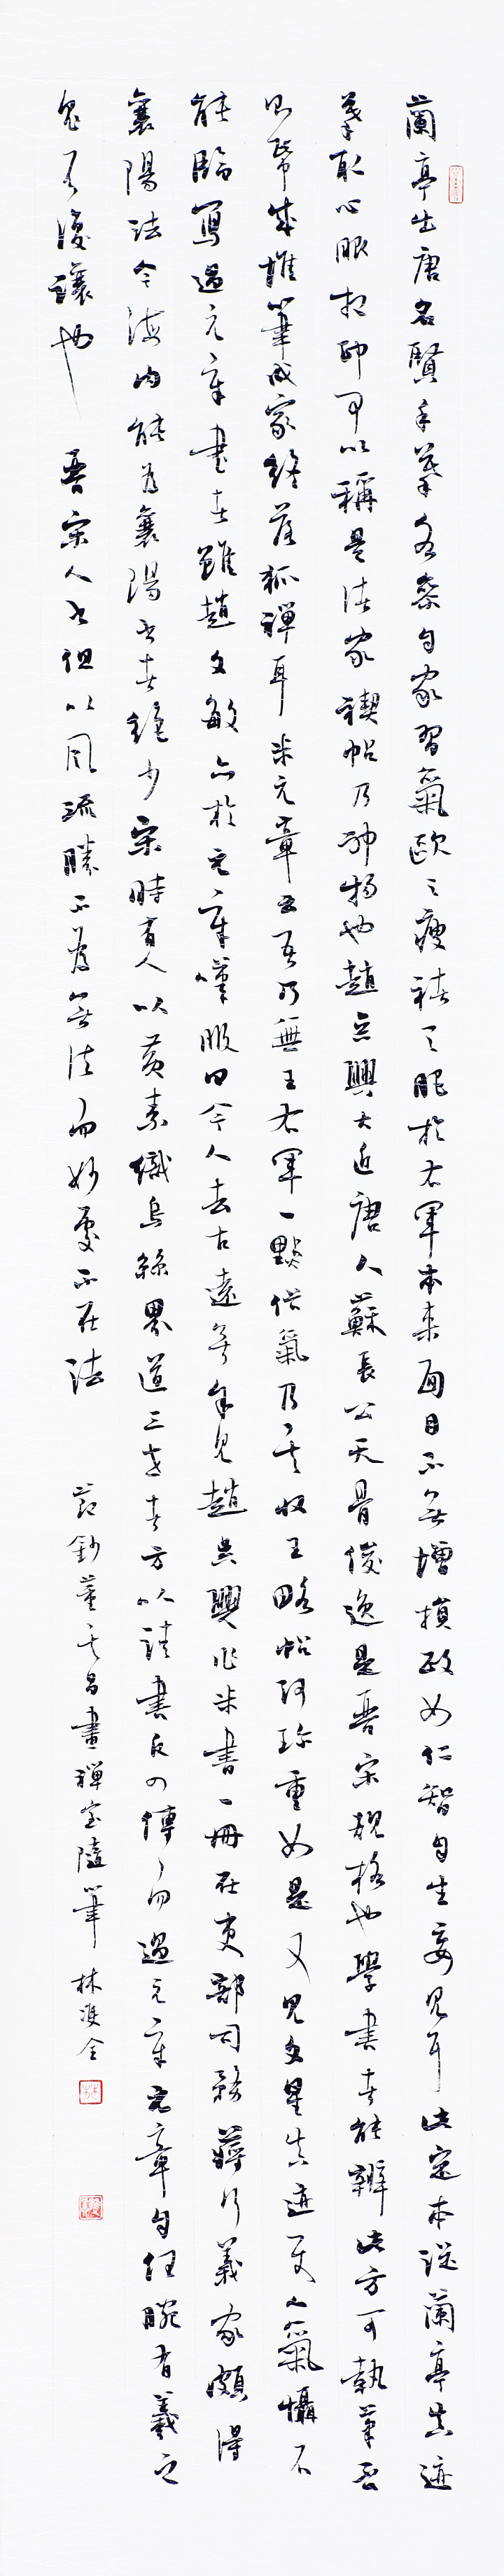 蘭亭出唐名賢手摹各參自家習氣歐之瘦褚之肥於右軍本來面目不無增損政如仁智自生妄見耳此定本從蘭亭真迹
摹取心眼相印可以稱量法家禊帖乃神物也趙吳興大近唐人蘇長公天骨俊逸是晉宋規格也學書者能辨此方可執筆否
則帋成堆筆成冢終落狐禪耳米元章云吾書無王右軍一點俗氣乃其收王略帖何珍重如是又見文皇真迹使人氣懾不
能臨寫過元章書者雖趙文敏亦於元章嘆服曰今人去古遠矣余見趙吳興作米書一冊在吏部司務蔣行義家頗得
襄陽法今海內能為襄陽書者絕少宋時有人以黃素織烏絲界道三丈者方以請書於四傳而遇元章元章自任腕有羲之
鬼不復讓也 晉宋人書但以風流勝不為無法而妙處不在法 節鈔董其昌畫禪室隨筆 林